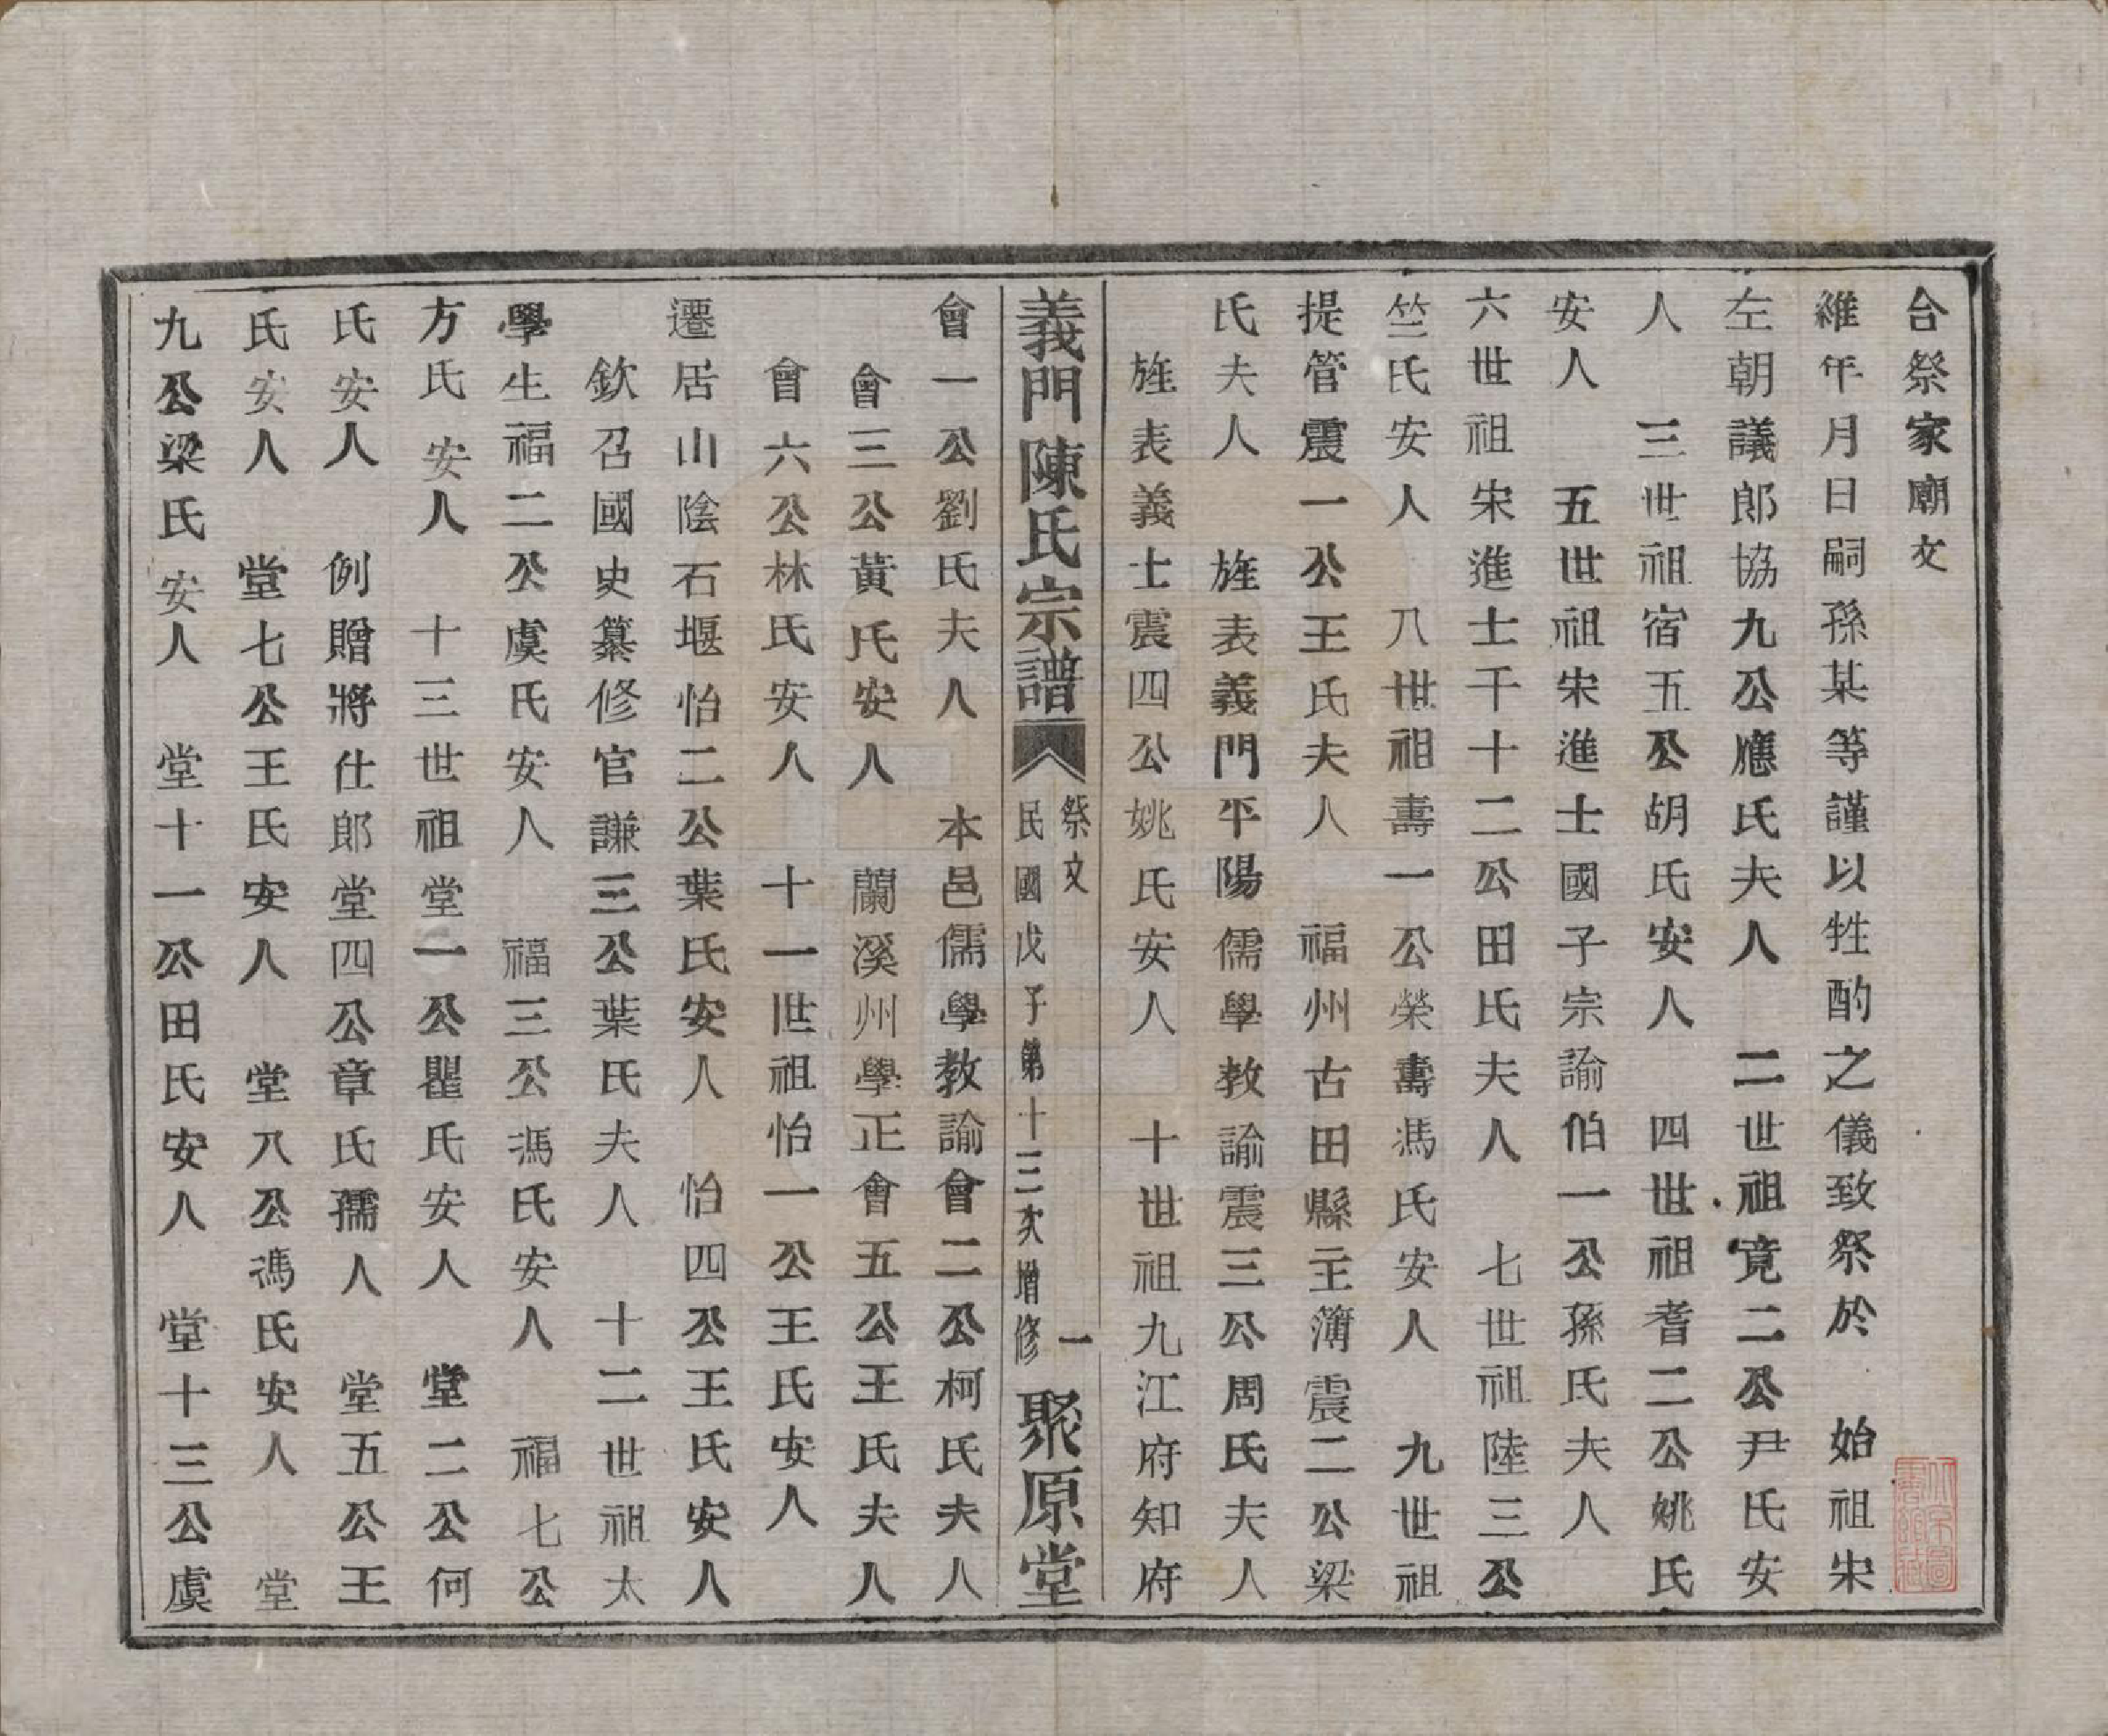 合祭家廟文
維年月日嗣孫某等謹以牲酌之儀致祭於　始祖宋
左朝議郎協九公應氏夫人　二世祖寬二公尹氏安
人　三世祖宿五公胡氏安人　四世祖耆二公姚氏
安人　五世祖宋進士國子宗諭伯一公孫氏夫人
六世祖宋進士千十二公田氏夫人　七世祖陸三公
竺氏安人　八世祖壽一公榮壽馮氏安人　九世祖
提管震一公王氏夫人　福州古田縣主簿震二公梁
氏夫人　旌表義門平陽儒學教諭震三公周氏夫人
旌表義士震四公姚氏安人　十世祖九江府知府
義門陳氏宗譜
祭文
一
民國戊子第十三次增修
聚原堂
會一公劉氏夫人　本邑儒學教諭會二公柯氏夫人
會三公黃氏安人　蘭溪州學正會五公王氏夫人
會六公林氏安人　十一世祖怡一公王氏安人
遷居山陰石堰怡二公葉氏安人　怡四公王氏安人
欽召國史纂修官謙三公葉氏夫人　十二世祖太
學生福二公虞氏安人　福三公馮氏安人　福七公
方氏安人　十三世祖堂一公瞿氏安人　堂二公何
氏安人　例贈將仕郎堂四公章氏孺人　堂五公王
氏安人　堂七公王氏安人　堂八公馮氏安人　堂
九公梁氏安人　堂十一公田氏安人　堂十三公虞